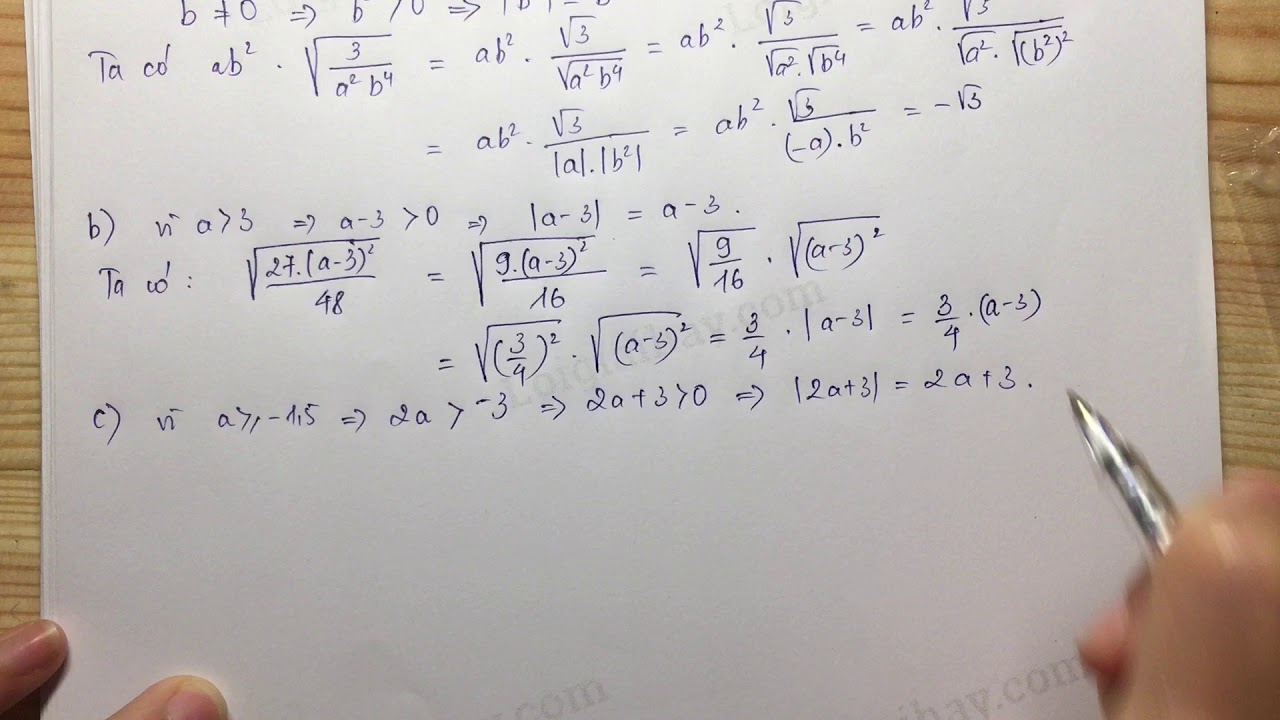 b ≠ 0 ⇒ b > 0 ⇒ |b
Ta có ab² · √(3/(a²b⁴)) = ab² · √3/√(a²b⁴) = ab² · √3/(√a² · √b⁴) = ab² · √3/(√a² · √(b²)²)
= ab² · √3/(|a|.|b²|) = ab² · √3/((-a).b²) = -√3
b) vì a > 3 ⇒ a-3 > 0 ⇒ |a-3| = a-3.
Ta có: √(27.(a-3)²/48) = √(9.(a-3)²/16) = √(9/16) · √(a-3)²
= √(3/4)² · √(a-3)² = 3/4 · |a-3| = 3/4 · (a-3)
c) vì a ≥ -1,5 ⇒ 2a > -3 ⇒ 2a+3 > 0 ⇒ |2a+3| = 2a+3.
Loigiaihay.com